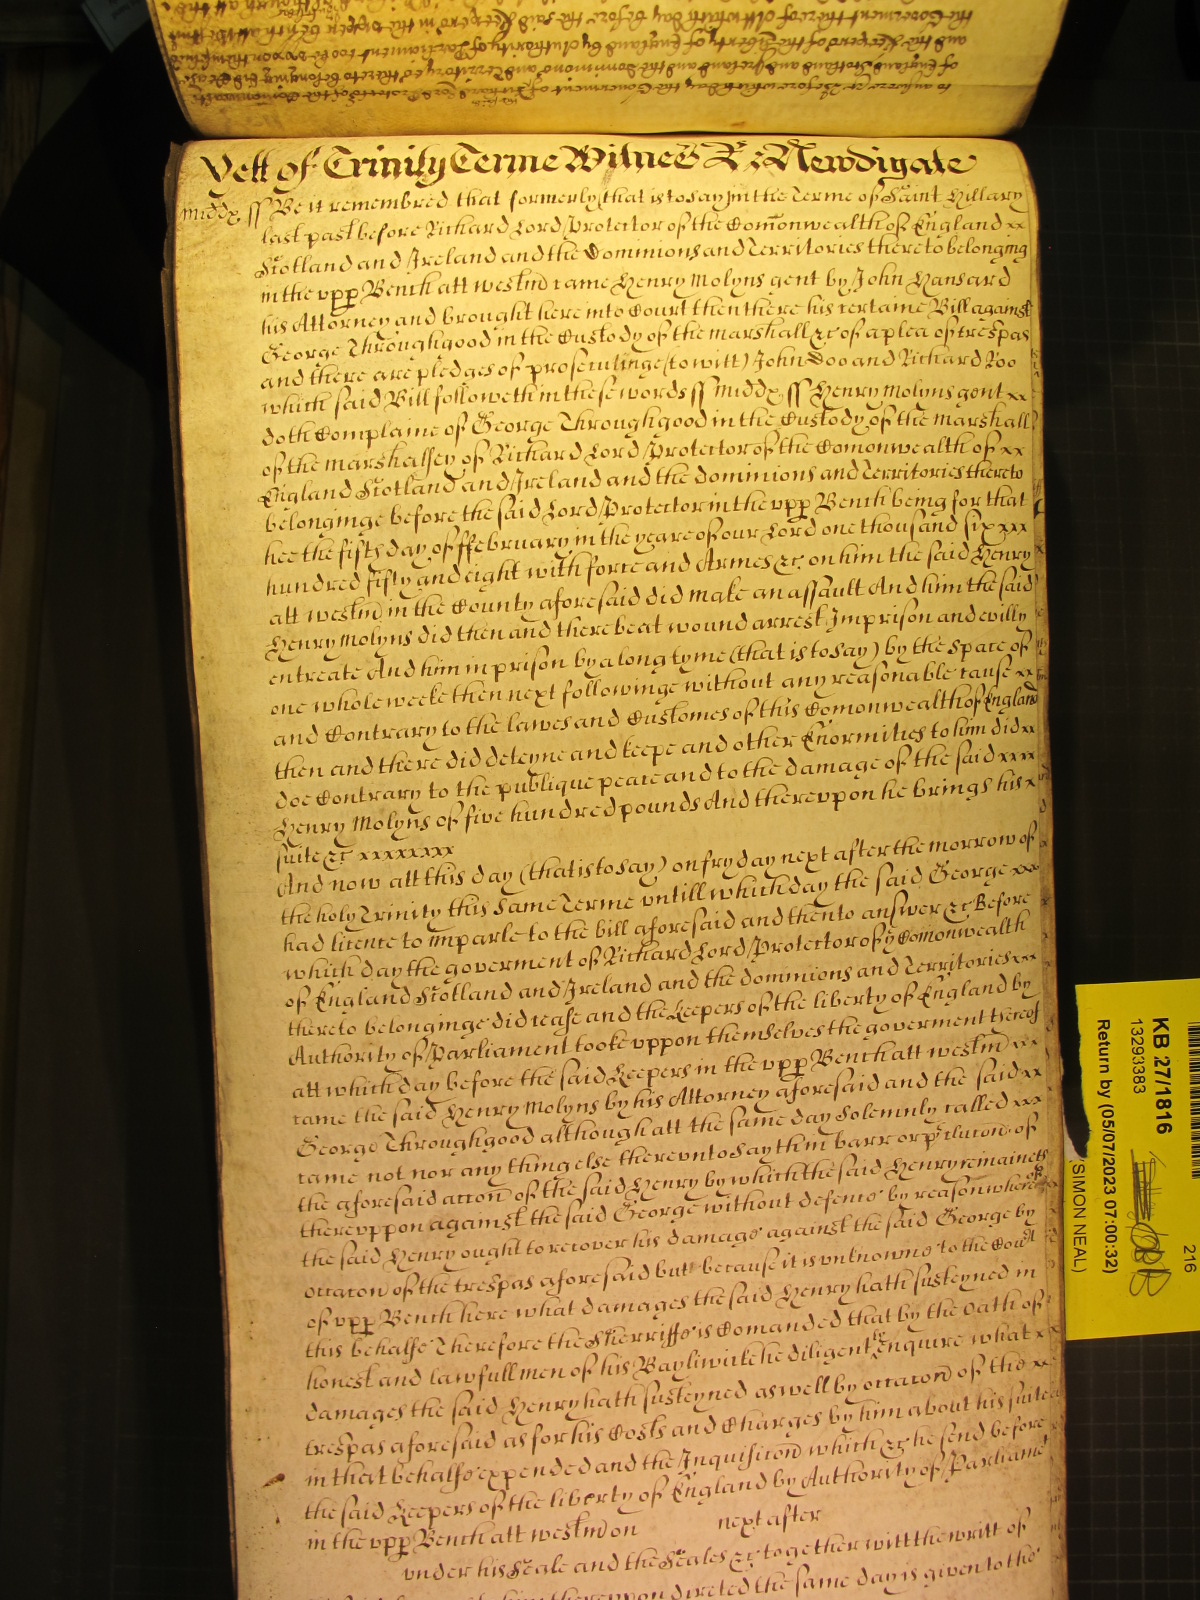 Yett of Trinity Terme Witnes R: Newdigate
Middx ss Be it remembred that formerly (that is to say) in the Terme of Saint Hillary
last past before Richard Lord Protector of the Comonwealth of England xx
Scotland and Ireland and the Dominions and Territories thereto belonging
in the vpp Bench att westm came Henry Molyns gent by John Hansard
his Attorney and brought here into Court then there his certaine Bill against
George Throughgood in the Custody of the marshall &c of a plea of trespas
and there are pledges of prosecutinge (to witt) John Doo and Richard Roo
which said Bill followeth in these words ss Middx ss Henry Molyns gent xx
doth Complaine of George Throughgood in the Custody of the marshall
of the marshalsey of Richard Lord Protector of the Comonwealth of xx
England Scotland and Ireland and the dominions and Territories thereto
belonginge before the said Lord Protector in the vpp Bench being for that
hee the fifth day of ffebruary in the yeare of our Lord one thousand six xxx
hundred fifty and eight with force and Armes &c on him the said Henry
att westm in the County aforesaid did make an assault And him the said
Henry Molyns did then and there beat wound arrest Imprison and evilly
entreate And him in prison by a long tyme (that is to say) by the space of
one whole weeke then next followinge without any reasonable cause xx
and Contrary to the lawes and Customes of this Comonwealth of England
then and there did deteyne and keepe and other Enormities to him did xx
doe Contrary to the publique peace and to the damage of the said xxxx
Henry Molyns of five hundred pounds And therevpon he brings his x
suite &c xxxxxxxx
And now att this day (that is to say) on fryday next after the morrow of
the holy Trinity this same Terme vntill which day the said George xxx
had licence to imparle to the bill aforesaid and then to answer &c Before
which day the goverment of Richard Lord Protector of y Comonwealth
of England Scotland and Ireland and the dominions and Territories xxx
thereto belonginge did cease and the Keepers of the liberty of England by
Authority of Parliament tooke vppon themselves the goverment thereof
att which day before the said Keepers in the vpp Bench att westm xx
came the said Henry Molyns by his Attorney aforesaid and the said xx
George Throughgood although att the same day solemnly called xxx
came not nor any thing else therevnto say them barr or pclucon of
the aforesaid accon of the said Henry by which the said Henry remaineth
therevppon against the said George without defence by reason whereof
the said Henry ought to recover his damage against the said George by
occacon of the trespas aforesaid but because it is vnknowne to the Court
of vpp Bench here what damages the said Henry hath susteyned in
this behalfe Therefore the Sherriffe is Comanded that by the Oath of
honest and lawfull men of his Bayliwicke he diligently enquire what xx
damages the said Henry hath susteyned aswell by occacon of the xx
trespas aforesaid as for his Costs and Charges by him about his suite
in that behalfe expended and the Inquisicon which &c he send before
the said Keepers of the liberty of England by Authority of Parliamt
in the vpp Bench att westm on next after
vnder his Seale and the Seales &c together witt the writt of
therevpon directed the same day is given to the
KB 27/1816
13293383
Return by (05/07/2023 07:00:32)
(SIMON NEAL)
216